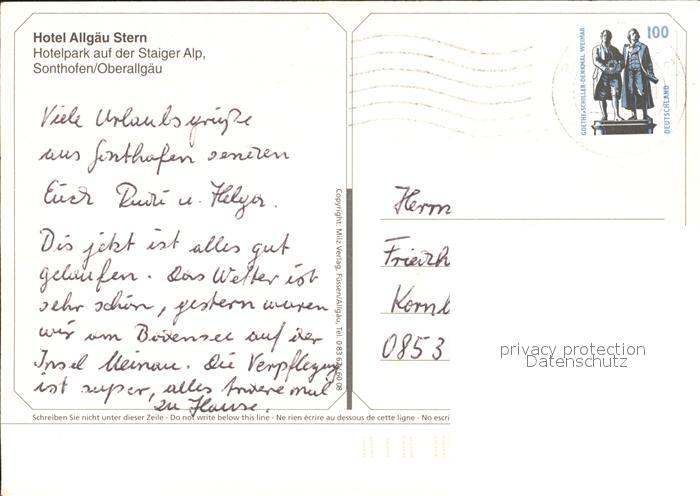 Hotel Allgäu Stern
Hotelpark auf der Staiger Alp,
Sonthofen/Oberallgäu
Viele Urlaubsgrüße
aus Sonthofen senden
Euch Rudi u. Helga.
Bis jetzt ist alles gut
gelaufen. Das Wetter ist
sehr schön, gestern waren
wir am Bodensee auf der
Insel Meinau. Die Verpflegung
ist super, alles andere mal
zu Hause.
Schreiben Sie nicht unter dieser Zeile - Do not write below this line - Ne rien écrire au dessous de cette ligne - No escri
Copyright: Milz Verlag, Füssen/Allgäu, Tel. 0 83 62/60 08
100
GOETHE-SCHILLER-DENKMAL WEIMAR
DEUTSCHLAND
Herrn
Friedh
Kornb
0853
privacy protection
Datenschutz